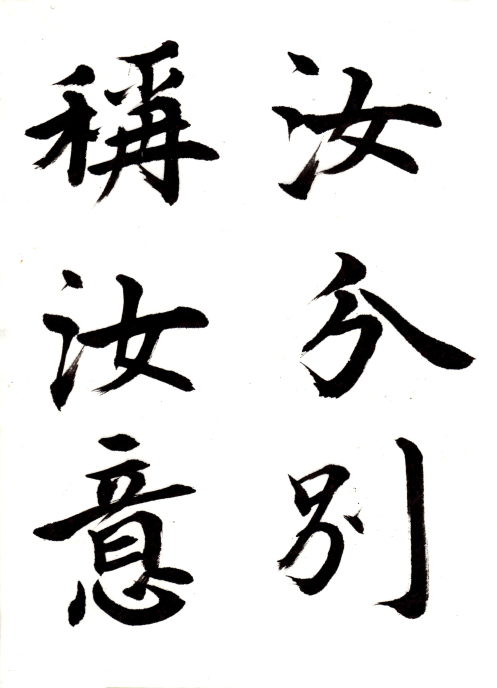 汝分別
稱汝意